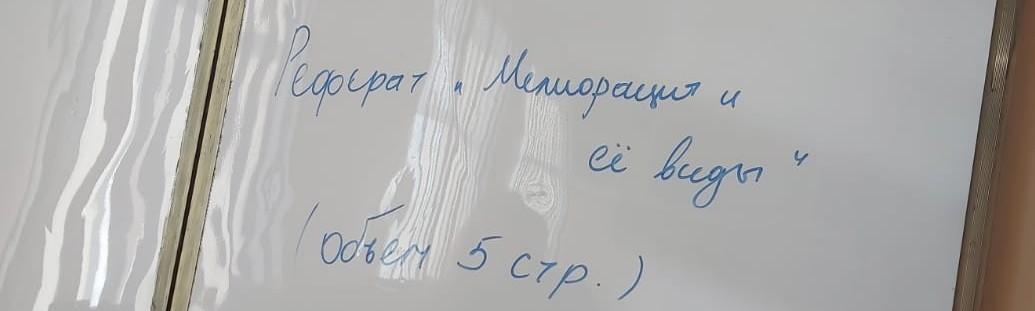 Реферат „ Мелиорация и
её виды “
(объём 5 стр.)